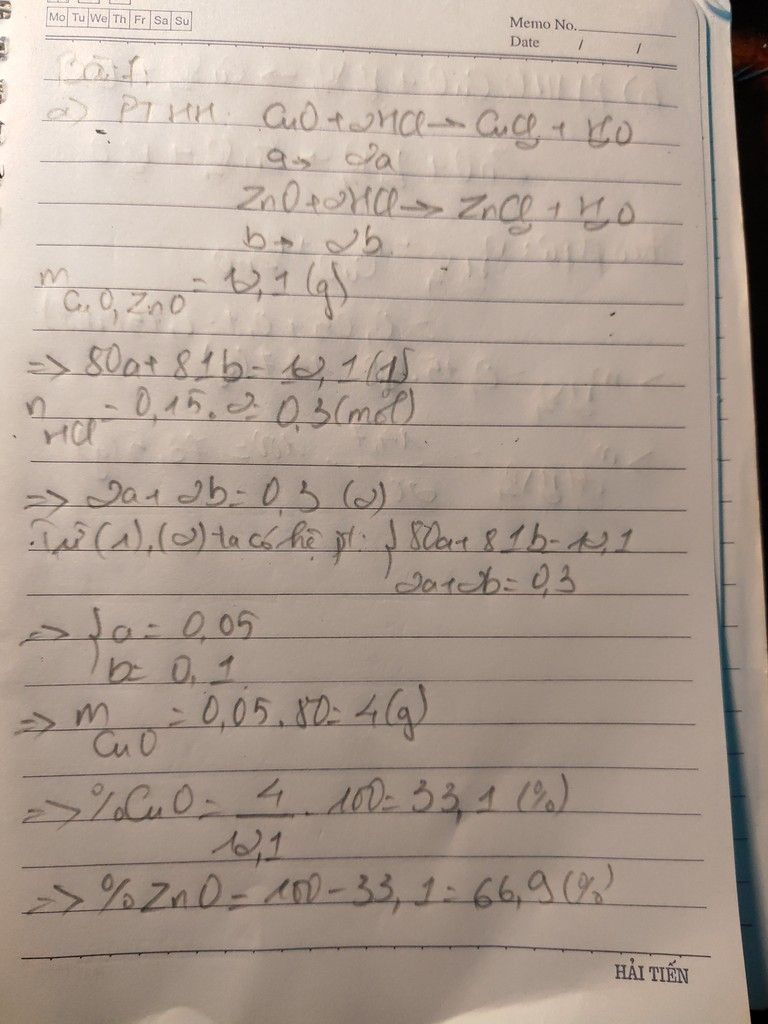 Mo Tu We Th Fr Sa Su
Memo No.
Date / /
Bài 1:
a) PTHH: CuO + 2HCl → CuCl₂ + H₂O
a → 2a
ZnO + 2HCl → ZnCl₂ + H₂O
b → 2b
m CuO, ZnO = 12,1 (g)
=> 80a + 81b = 12,1 (1)
n HCl = 0,15 . 2 = 0,3 (mol)
=> 2a + 2b = 0,3 (2)
Từ (1), (2) ta có hệ pt: { 80a + 81b = 12,1
2a + 2b = 0,3
=> { a = 0,05
b = 0,1
=> m CuO = 0,05 . 80 = 4 (g)
=> %CuO = 4/12,1 . 100 = 33,1 (%)
=> %ZnO = 100 - 33,1 = 66,9 (%)
HẢI TIẾN